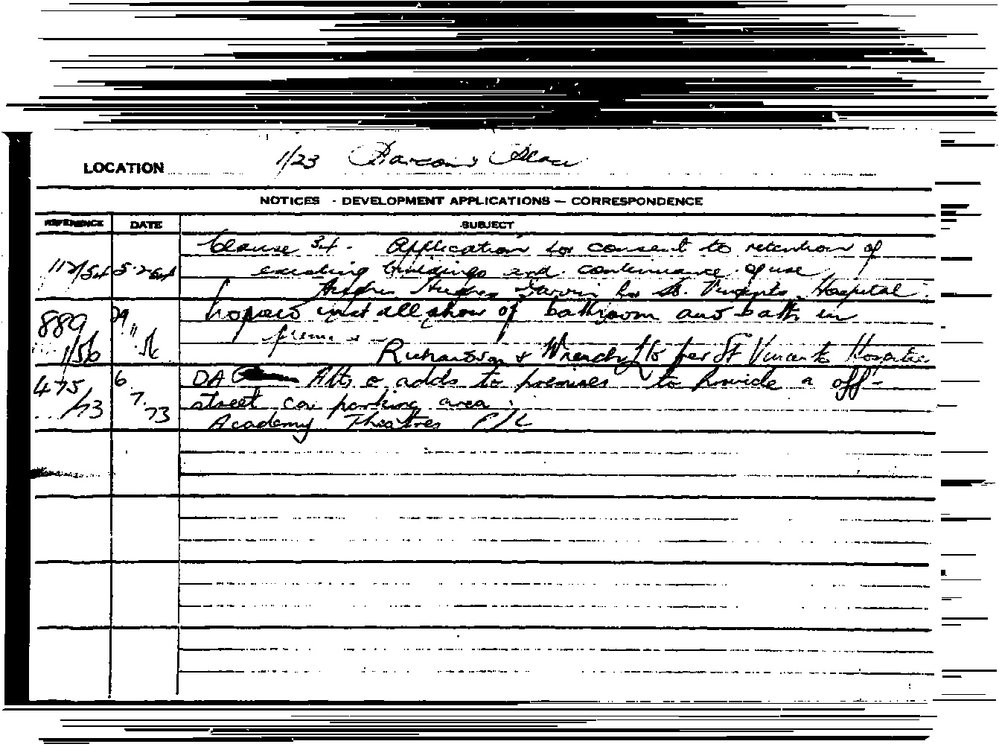 LOCATION 1/23 Place
NOTICES - DEVELOPMENT APPLICATIONS — CORRESPONDENCE
REFERENCE DATE SUBJECT
112/54 5-2-54 Clause 34. Application for consent to retention of
existing buildings and continuance of use
Hughes Garvin for St. Vincents Hospital
889/56 29 11 56 install of bathroom and bath in
prem
Richardson & Wrench per St Vincents Hospital
475/73 6.7.73 DA Alts & adds to premises to provide a off-
street car parking area.
Academy Theatres P/L